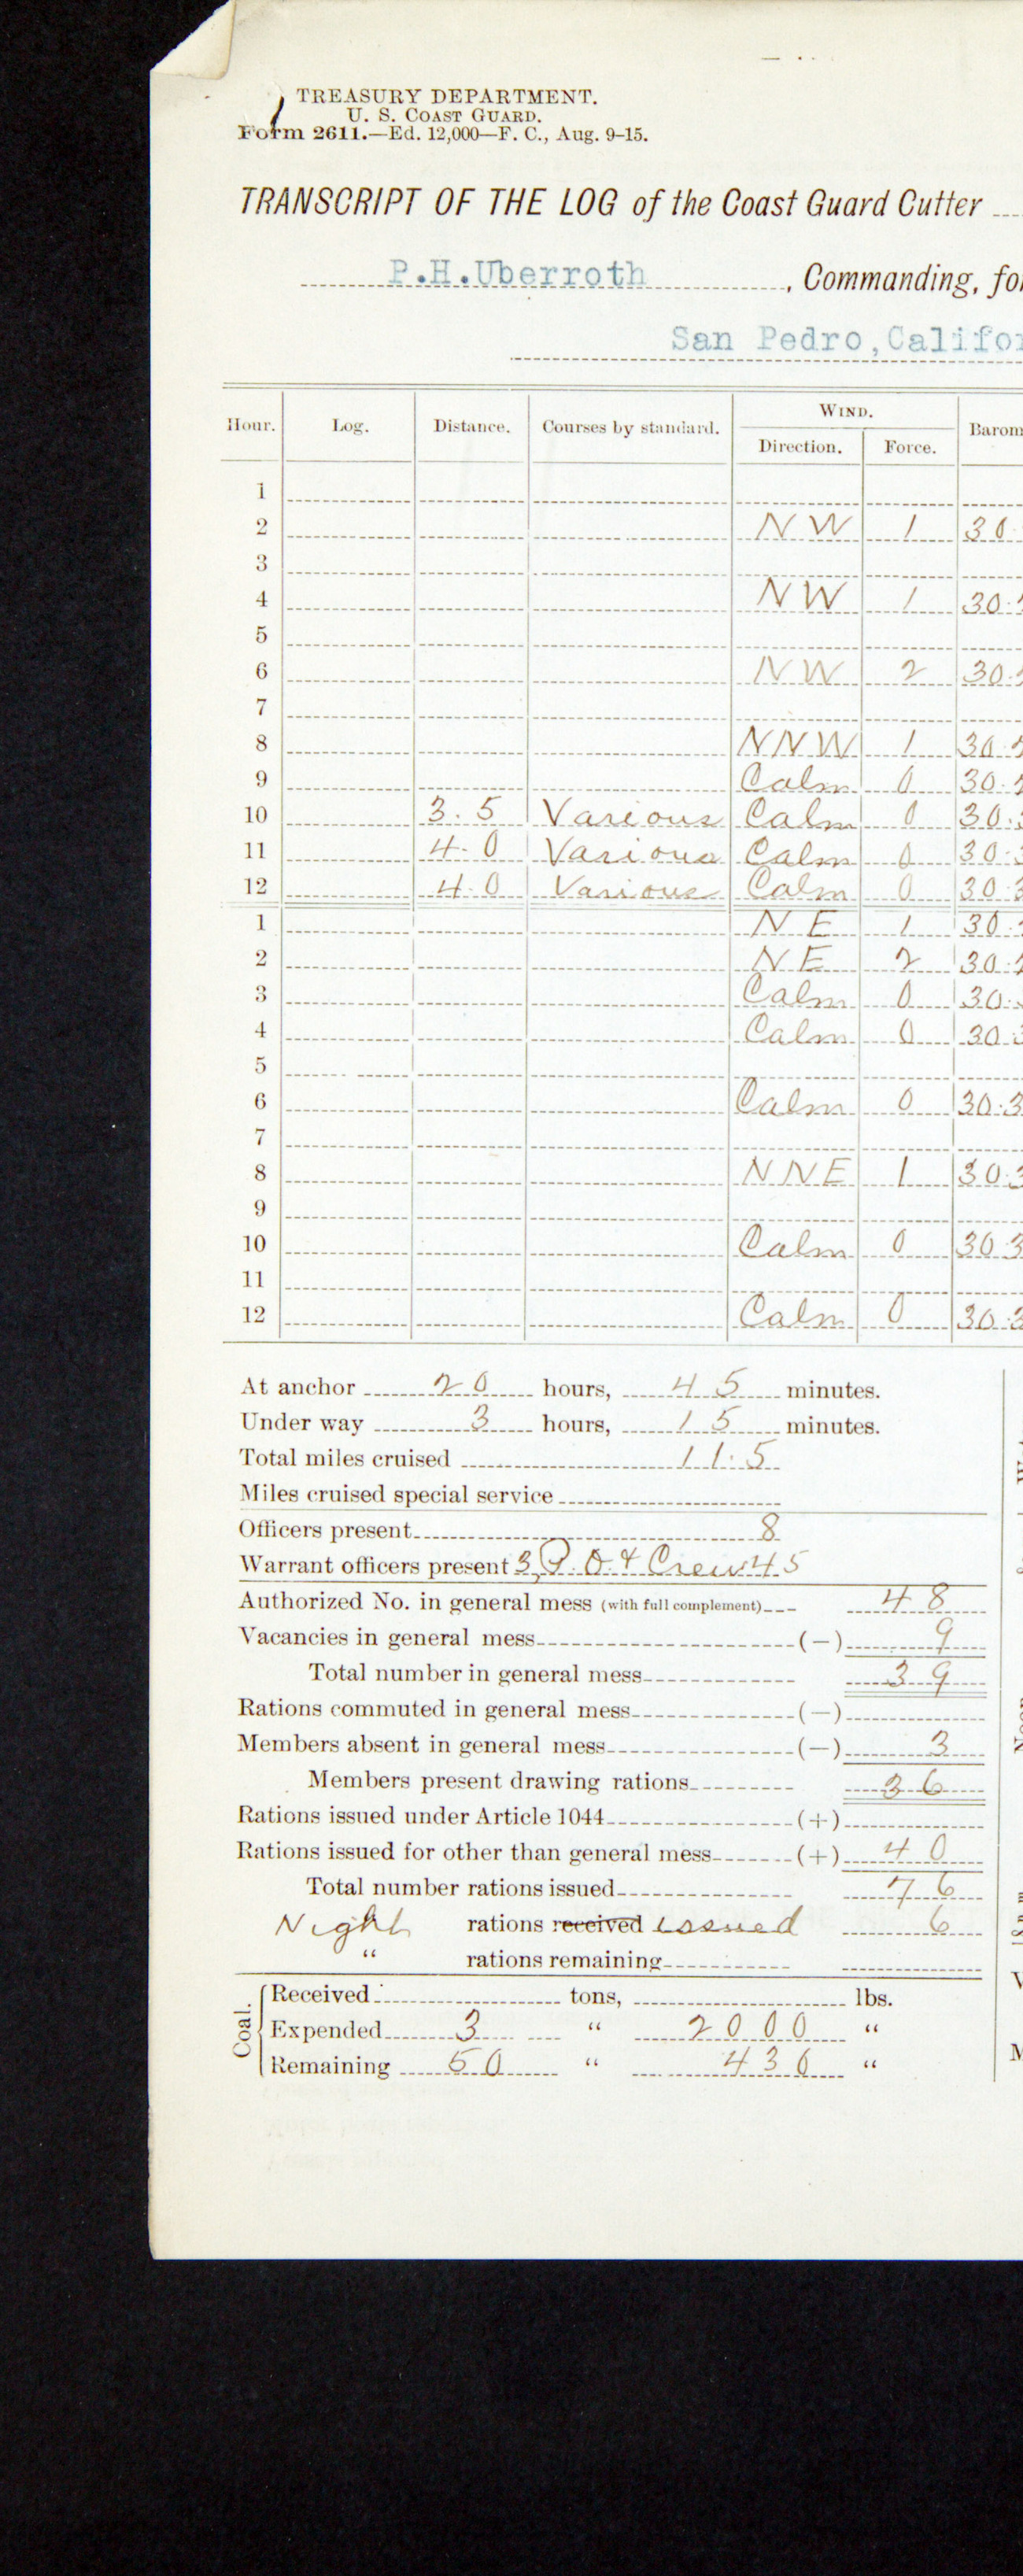 TREASURY DEPARTMENT.
U. S. COAST GUARD.
Form 2611.—Ed. 12,000—F. C., Aug. 9-15.
TRANSCRIPT OF THE LOG of the Coast Guard Cutter
P.H.Uberroth, Commanding, for
San Pedro, Califor
Hour. Log. Distance. Courses by standard. WIND. Barom
Direction. Force.
1
2 NW 1 30
3
4 NW 1 30.
5
6 NW 2 30.
7
8 NNW 1 30.
9 Calm 0 30.
10 3.5 Various Calm 0 30.
11 4.0 Various Calm 0 30.
12 4.0 Various Calm 0 30.3
1 NE 1 30.
2 NE 2 30.
3 Calm 0 30.
4 Calm 0 30.
5
6 Calm 0 30.3
7
8 NNE 1 30.3
9
10 Calm 0 30.3
11
12 Calm 0 30.3
At anchor 20 hours, 45 minutes.
Under way 3 hours, 15 minutes.
Total miles cruised 11.5
Miles cruised special service
Officers present 8
Warrant officers present 3, P.O. & Crew 45
Authorized No. in general mess (with full complement) 48
Vacancies in general mess (—) 9
Total number in general mess 39
Rations commuted in general mess (—)
Members absent in general mess (—) 3
Members present drawing rations 36
Rations issued under Article 1044 (+)
Rations issued for other than general mess (+) 40
Total number rations issued 76
Night rations received issued 6
" rations remaining
Coal.
Received tons, lbs.
Expended 3 " 2000 "
Remaining 50 " 430 "